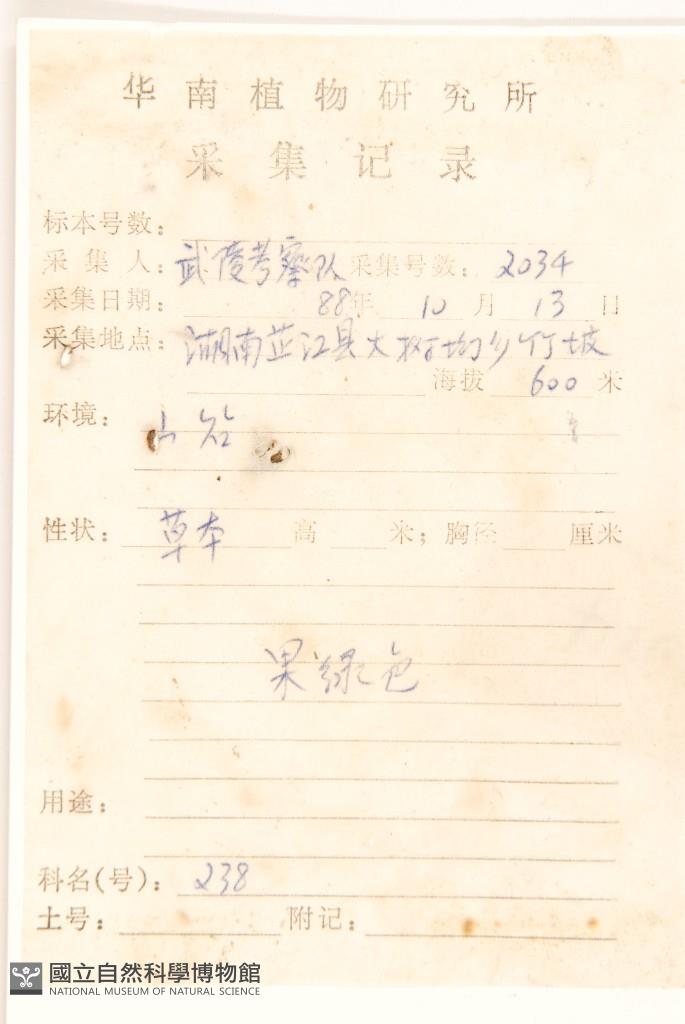 华南植物研究所
采集记录
标本号数:
采集人: 武陵考察队 采集号数: 2034
采集日期: 88年 10月 13日
采集地点: 湖南芷江县大树坳乡竹坡
海拔 600 米
环境: 山谷
性状: 草本 高 米; 胸径 厘米
果绿色
用途:
科名(号): 238
土号: 附记:
國立自然科學博物館
NATIONAL MUSEUM OF NATURAL SCIENCE